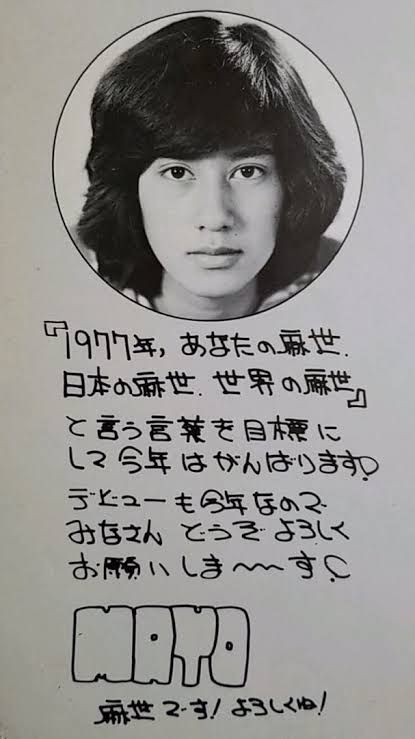 『1977年, あなたの麻世.
日本の麻世. 世界の麻世』
と言う言葉を目標に
して今年はがんばります♡
デビューも今年なので
みなさん どうぞ よろしく
お願いしま〜〜す♡
MAYO
麻世です! よろしくね!